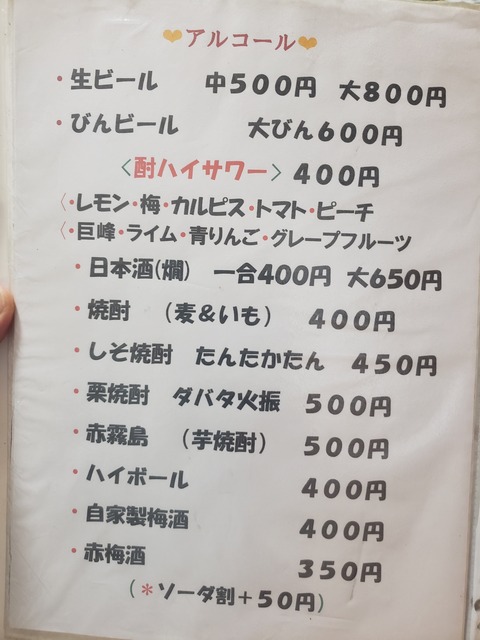 アルコール
・生ビール 中500円 大800円
・びんビール 大びん600円
〈酎ハイサワー〉400円
〈・レモン・梅・カルピス・トマト・ピーチ
〈・巨峰・ライム・青りんご・グレープフルーツ
・日本酒(燗) 一合400円 大650円
・焼酎 (麦&いも) 400円
・しそ焼酎 たんたかたん 450円
・栗焼酎 ダバタ火振 500円
・赤霧島 (芋焼酎) 500円
・ハイボール 400円
・自家製梅酒 400円
・赤梅酒 350円
(*ソーダ割+50円)